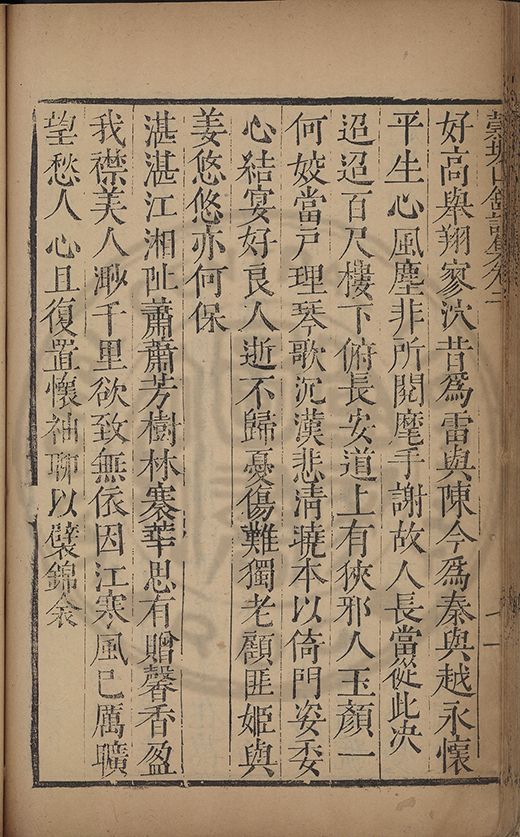 好高舉翔寥泬昔爲雷與陳今爲秦與越永懷
平生心風塵非所閱麾手謝故人長當從此决
迢迢百尺樓下俯長安道上有狹邪人玉顏一
何姣當戸理琴歌沉漢悲清
本以倚門姿委
心結宴好良人逝不歸憂傷難獨老顧匪姬與
姜悠悠亦何保
湛湛江湘阯蕭蕭芳樹林搴華思有贈馨香盈
我襟美人渺千里欲致無依因江寒風已厲曠
望愁人心且復置懷袖聊以襞錦衾